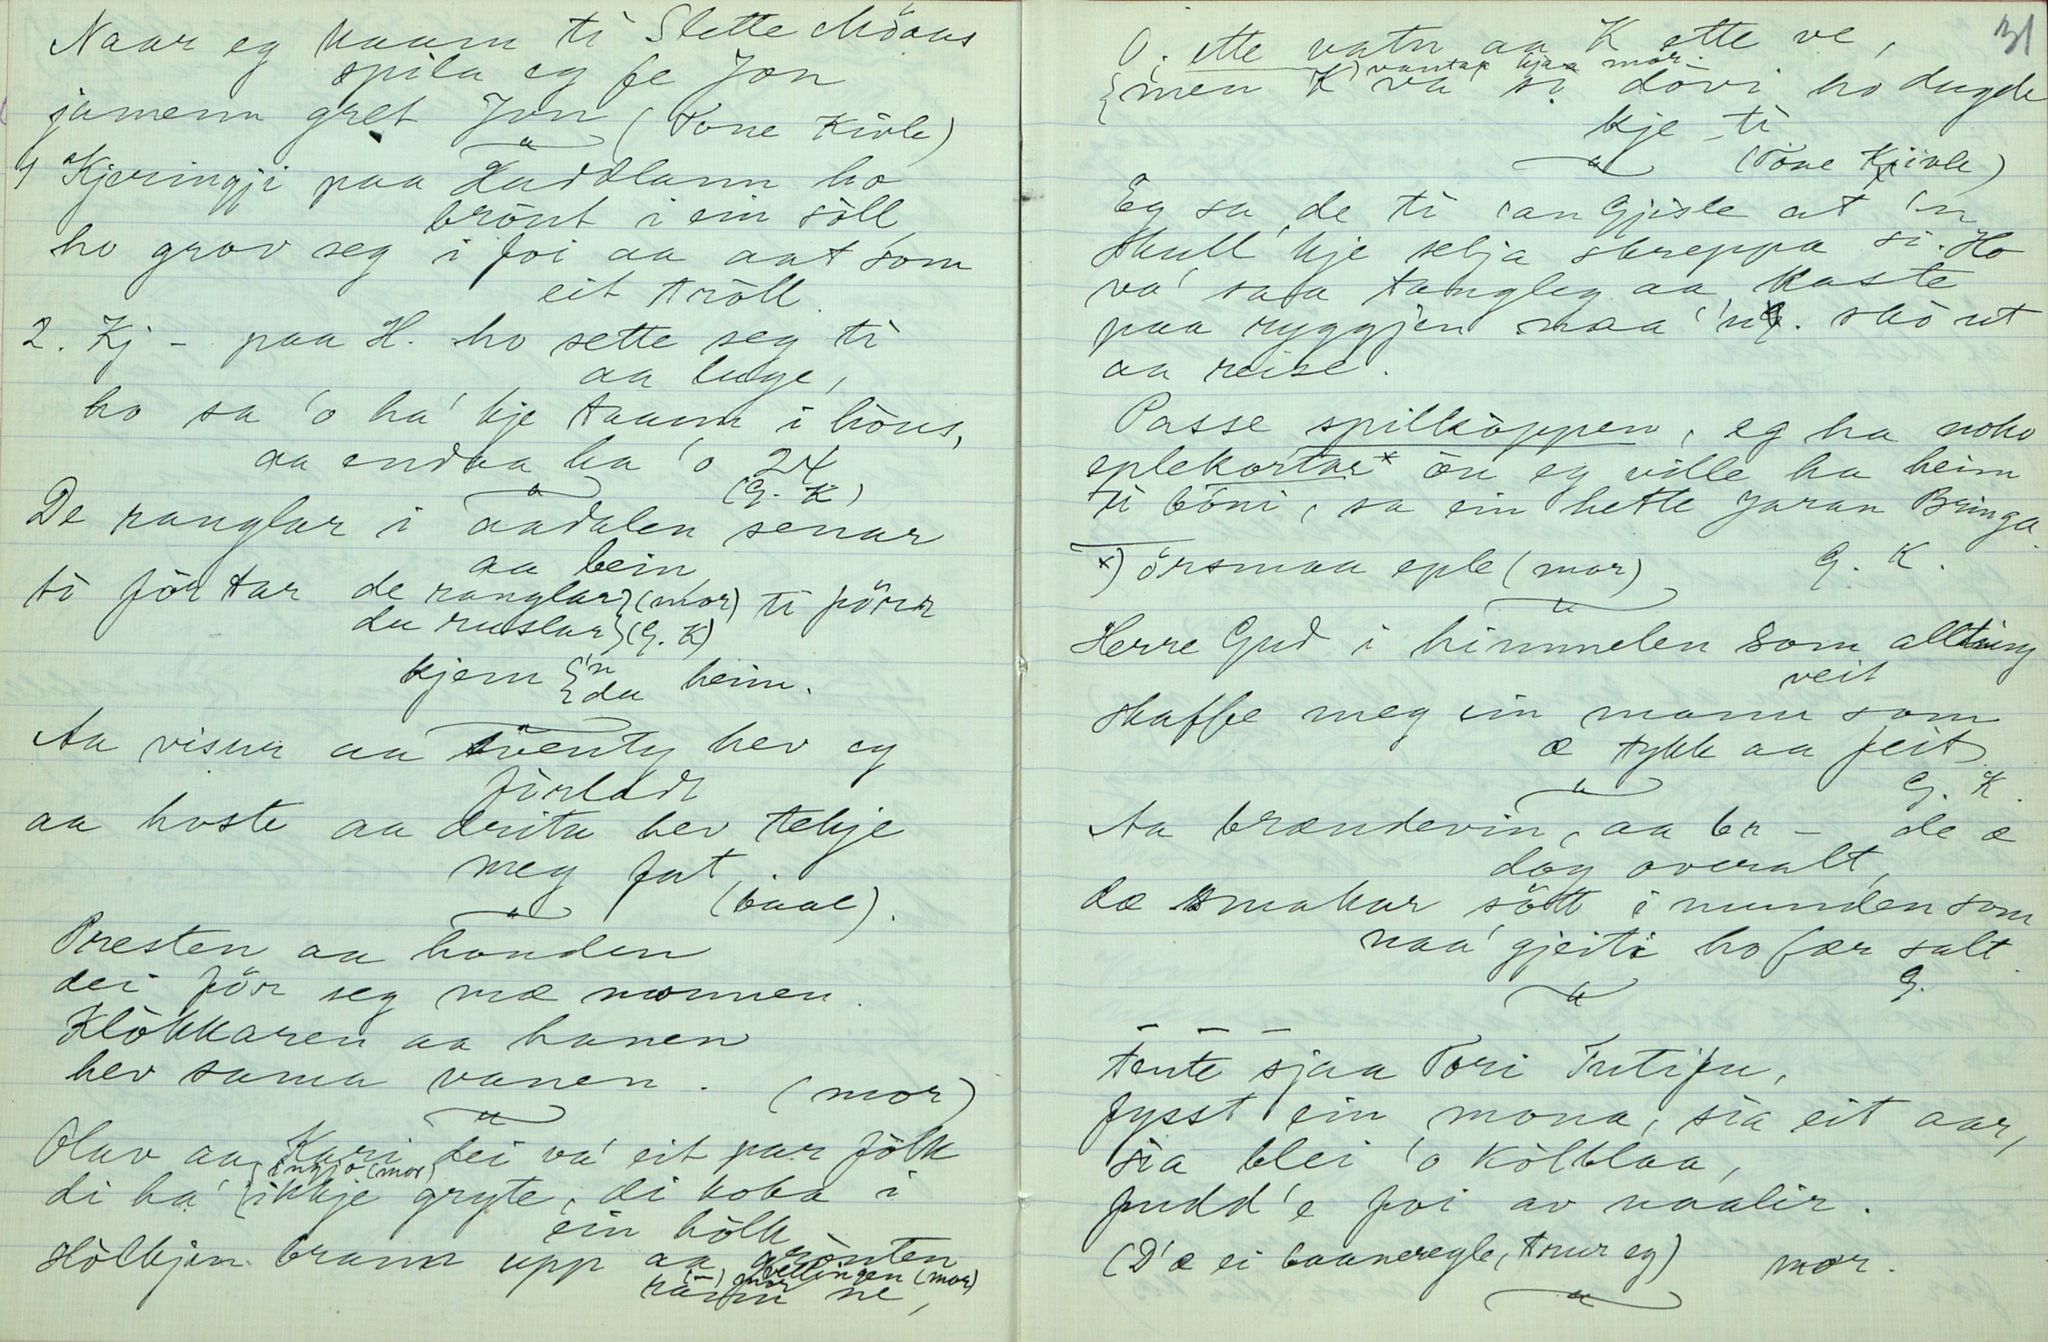 Naar eg kaam ti Slette Möans
spila eg fe Jon
jamenn gret Jon (Tone Kivle)
1 Kjæringji paa Haddlann ho
brönt i ein söll
ho grov seg i foi aa aat som
eit tröll.
2. Kj - paa H. ho sette seg ti
aa luge,
ho sa 'o ha' kje taann i höus,
aa endaa ha 'o 24
(G. K)
De ranglar i aadalen senar
aa bein
ti för tar de ranglar (mor) ti förr
du ruslar (G. K)
kjem 'n
du heim.
Aa visur aa eventy hev eg
förladt
aa hoste aa drita hev tekje
meg fat
(baal).
Presten aa honden
dei för seg mæ monnen.
Klökkaren aa hanen
hev sama vanen. (mor)
Olav aa Kari dei va' eit par fölk
ingjo (mor)
di ha' ikkje gryte, di koka i
ein hölk
Hölkjen brann upp aa grönten
(-) vellingen (mor)
rann ne,
31
O. ette vatn aa K ette ve,
K) vantar hjaa mor
men K va' si dovi ho dugde
kje ti
(Tone Kjivle)
Eg sa de ti 'an Gjisle at 'n
skull' kje selja skreppa si. Ho
va' saa tangleg aa kaste
paa ryggjen naa 'n sko ut
aa reise.
Passe spilkoppen, eg ha noko
eplekortar* ön eg ville ha heim
ti böni, sa ein hette Jaran Bringa.
*) örsmaa eple (mor) G. K.
Herre Gud i himmelen som allting
veit
skaffe meg ein mann som
æ tykk aa feit
G. K.
Aa brændevin, aa br - de æ
dog overalt,
dæ smakar sött i munden som
naa' gjeiti ho fær salt.
G.
Tente sjaa Tori Tutifu,
fysst ein mona, sia eit aar,
sia blei 'o kölblaa,
fudd'e foi av naalir.
(D'æ ei baaneregle, trur eg) mor.